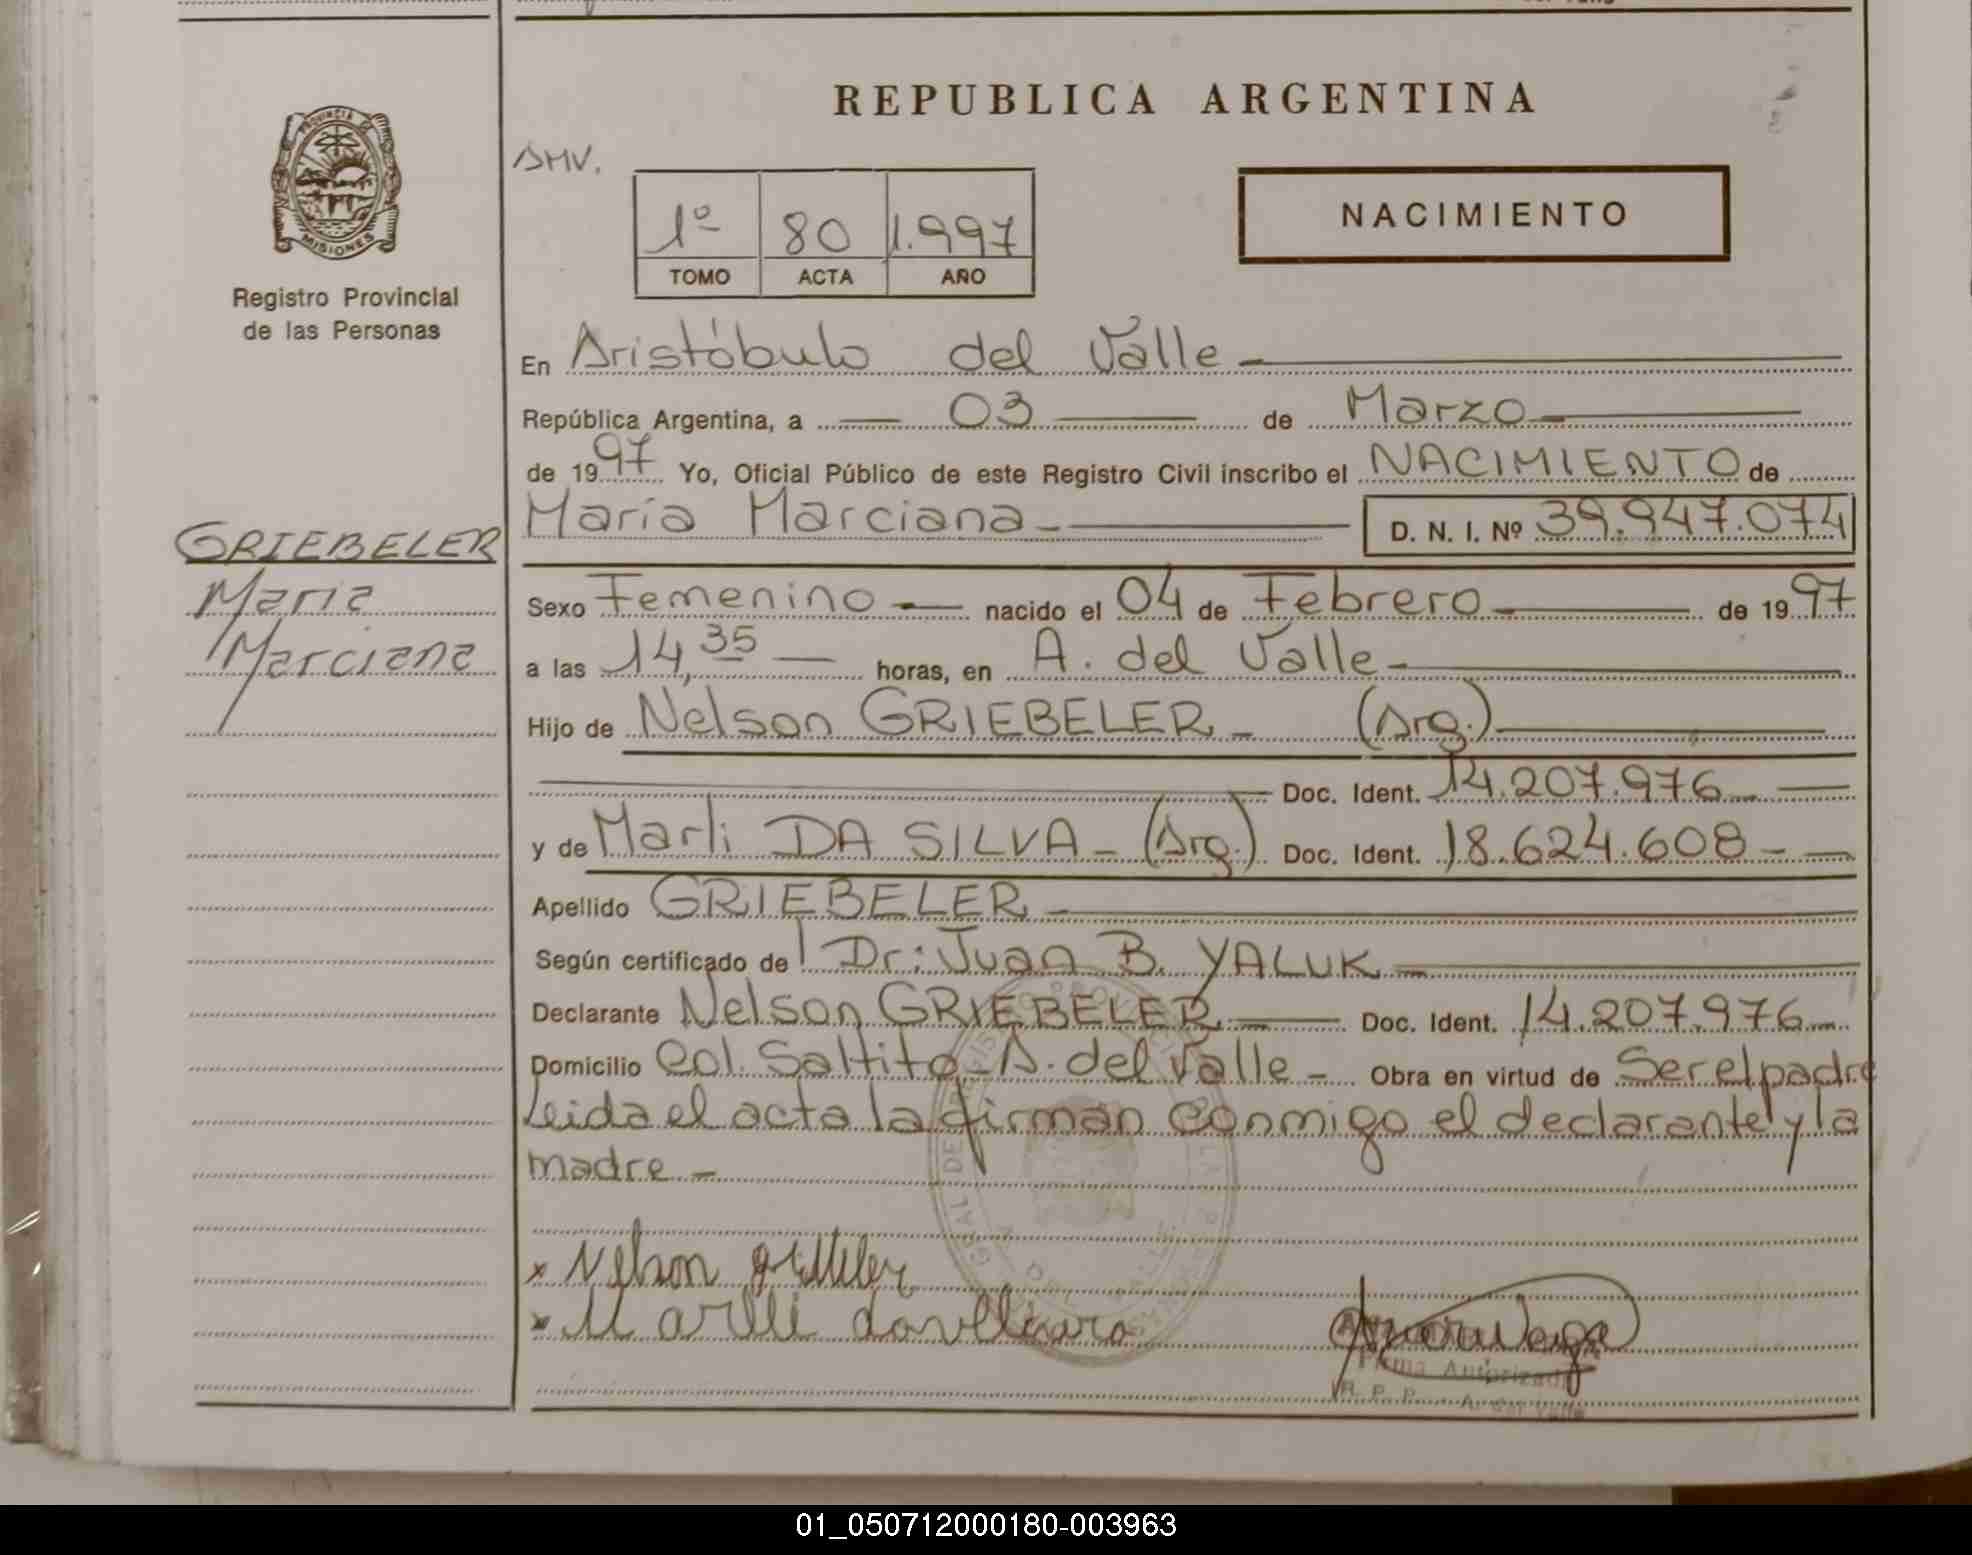 REPUBLICA ARGENTINA
PROVINCIA DE
MISIONES
Registro Provincial
de las Personas
1º 80 1.997
TOMO ACTA AÑO
NACIMIENTO
En Aristóbulo del Valle
República Argentina, a 03 de Marzo
de 1997 Yo, Oficial Público de este Registro Civil inscribo el NACIMIENTO de
María Marciana D. N. I. Nº 39.947.074
GRIEBELER
Maria
Marciana
Sexo Femenino nacido el 04 de Febrero de 1997
a las 14,35 horas, en A. del Valle
Hijo de Nelson GRIEBELER (Arg.)
Doc. Ident. 14.207.976
y de Marli DA SILVA (Arg.) Doc. Ident. 18.624.608
Apellido GRIEBELER
Según certificado de Dr: Juan B. YALUK
Declarante Nelson GRIEBELER Doc. Ident. 14.207.976
Domicilio Col. Saltito A. del Valle Obra en virtud de Ser el padre
Leida el acta la firman conmigo el declarante y la
madre
x Nelson
x Marlli
Firma Autorizada
R. P. P. A. del Valle
01_050712000180-003963